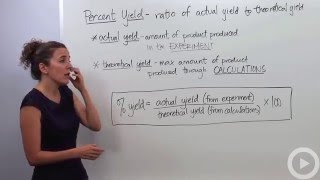 Percent Yield - ratio of actual yield to theoretical yield
* actual yield - amount of product produced
in the EXPERIMENT
* theoretical yield - max amount of product
produced through CALCULATIONS
% yield = actual yield (from experiment) × 100
theoretical yield (from calculations)